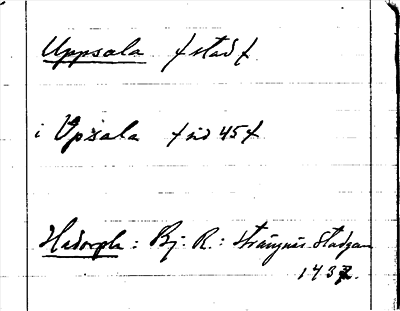 Uppsala f stad f.
i Upsala f sid 45 f.
Hadorph: Bj. R.: Strängnäs Stadgan
1437.